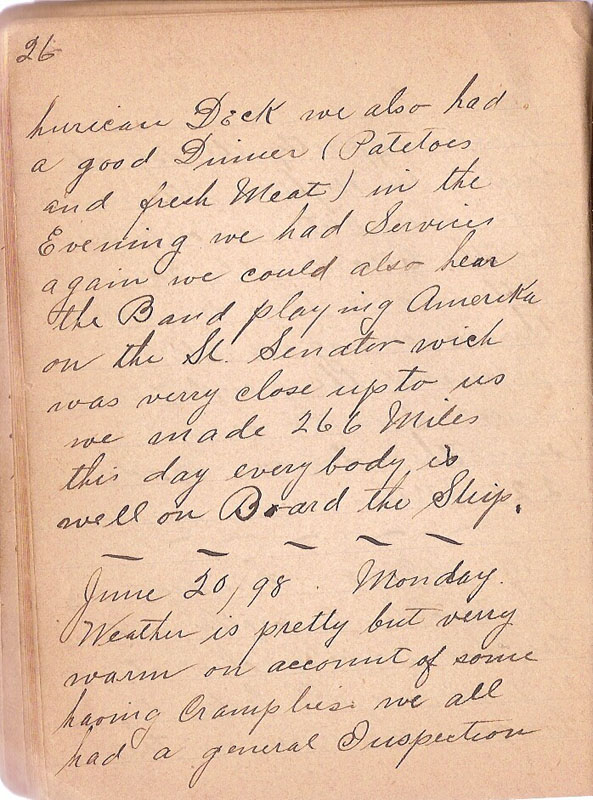 26
hurican Deck we also had
a good Dinner (Patetoes
and fresh Meat) in the
Evening we had Services
again we could also hear
the Band playing Amerika
on the St. Senator wich
was verry close up to us
we made 266 Miles
this day everybody is
well on Board the Ship.
June 20, 98. Monday.
Weather is pretty but verry
warm on account of some
having we all
had a general Inspection